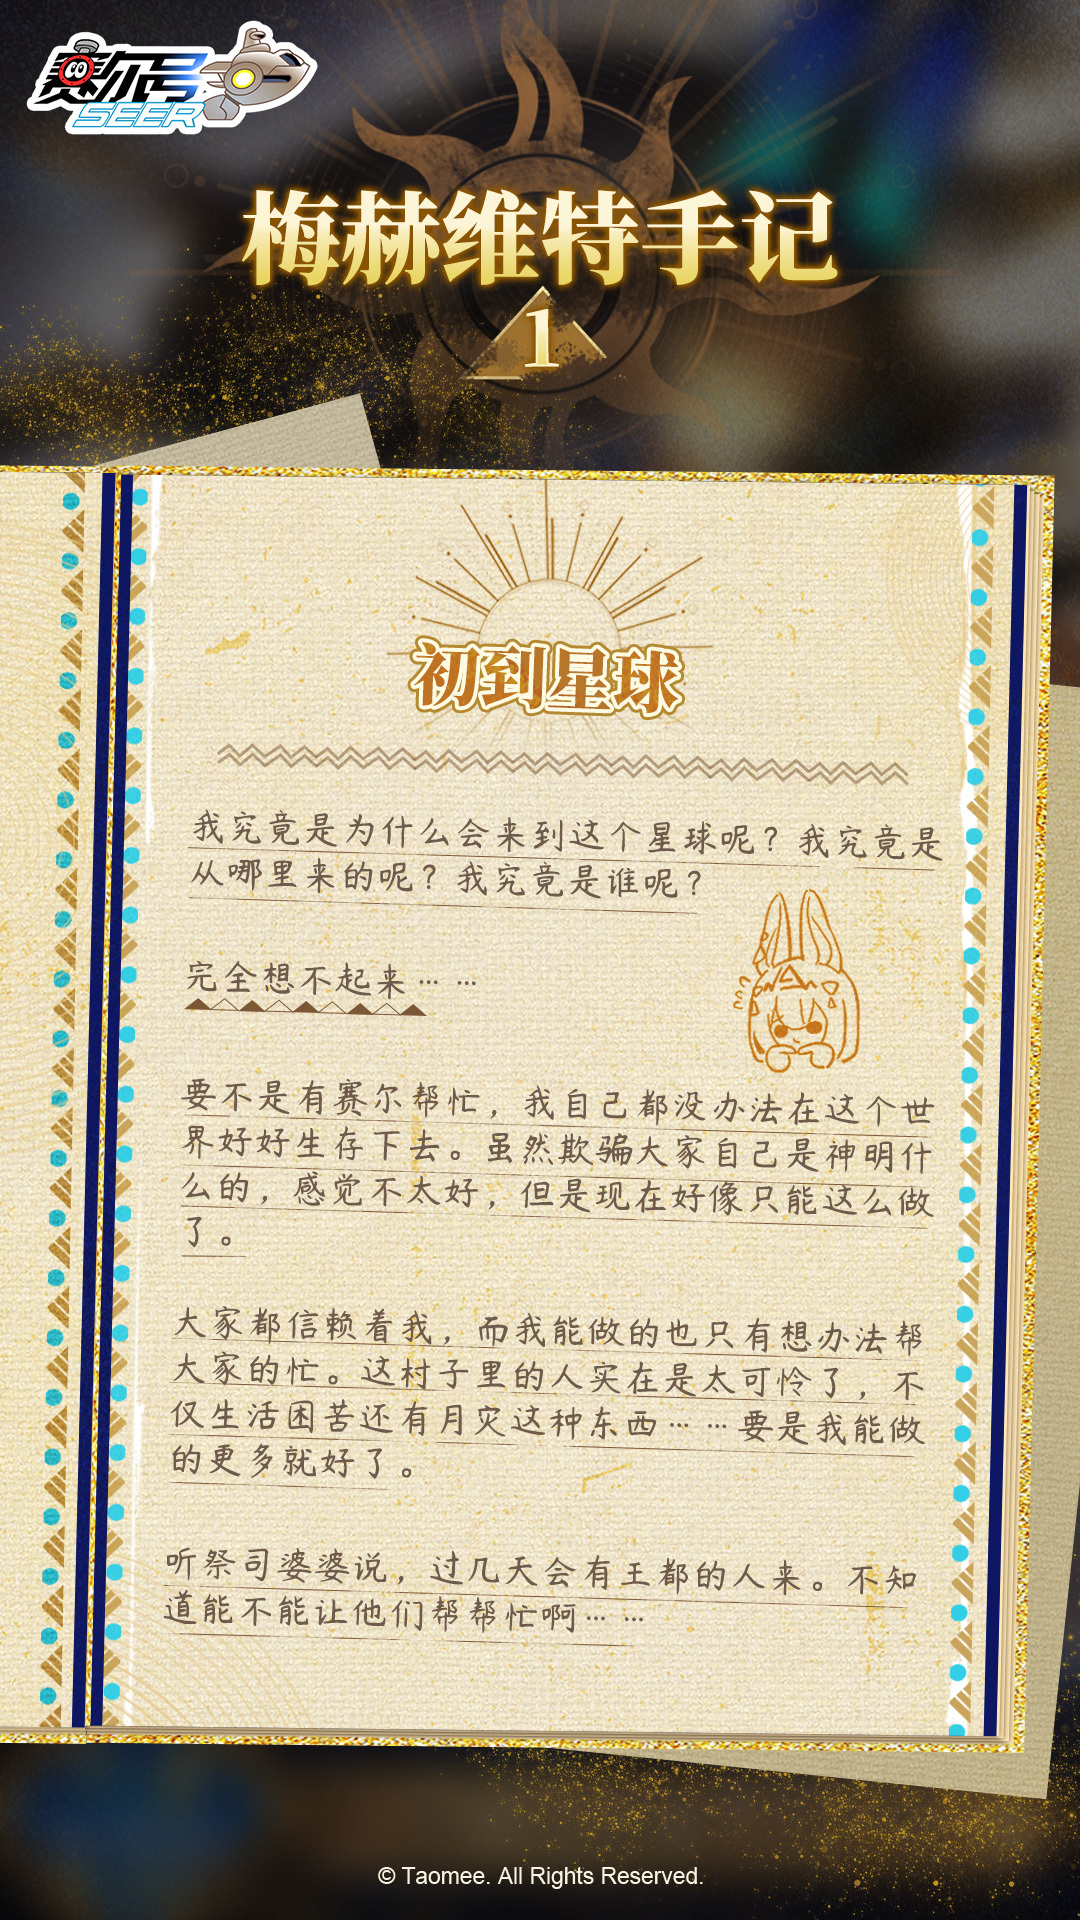 赛尔号
SEER
梅赫维特手记
1
初到星球
我究竟是为什么会来到这个星球呢？我究竟是
从哪里来的呢？我究竟是谁呢？
完全想不起来… …
要不是有赛尔帮忙，我自己都没办法在这个世
界好好生存下去。虽然欺骗大家自己是神明什
么的，感觉不太好，但是现在好像只能这么做
了。
大家都信赖着我，而我能做的也只有想办法帮
大家的忙。这村子里的人实在是太可怜了，不
仅生活困苦还有月灾这种东西… …要是我能做
的更多就好了。
听祭司婆婆说，过几天会有王都的人来。不知
道能不能让他们帮帮忙啊… …
© Taomee. All Rights Reserved.